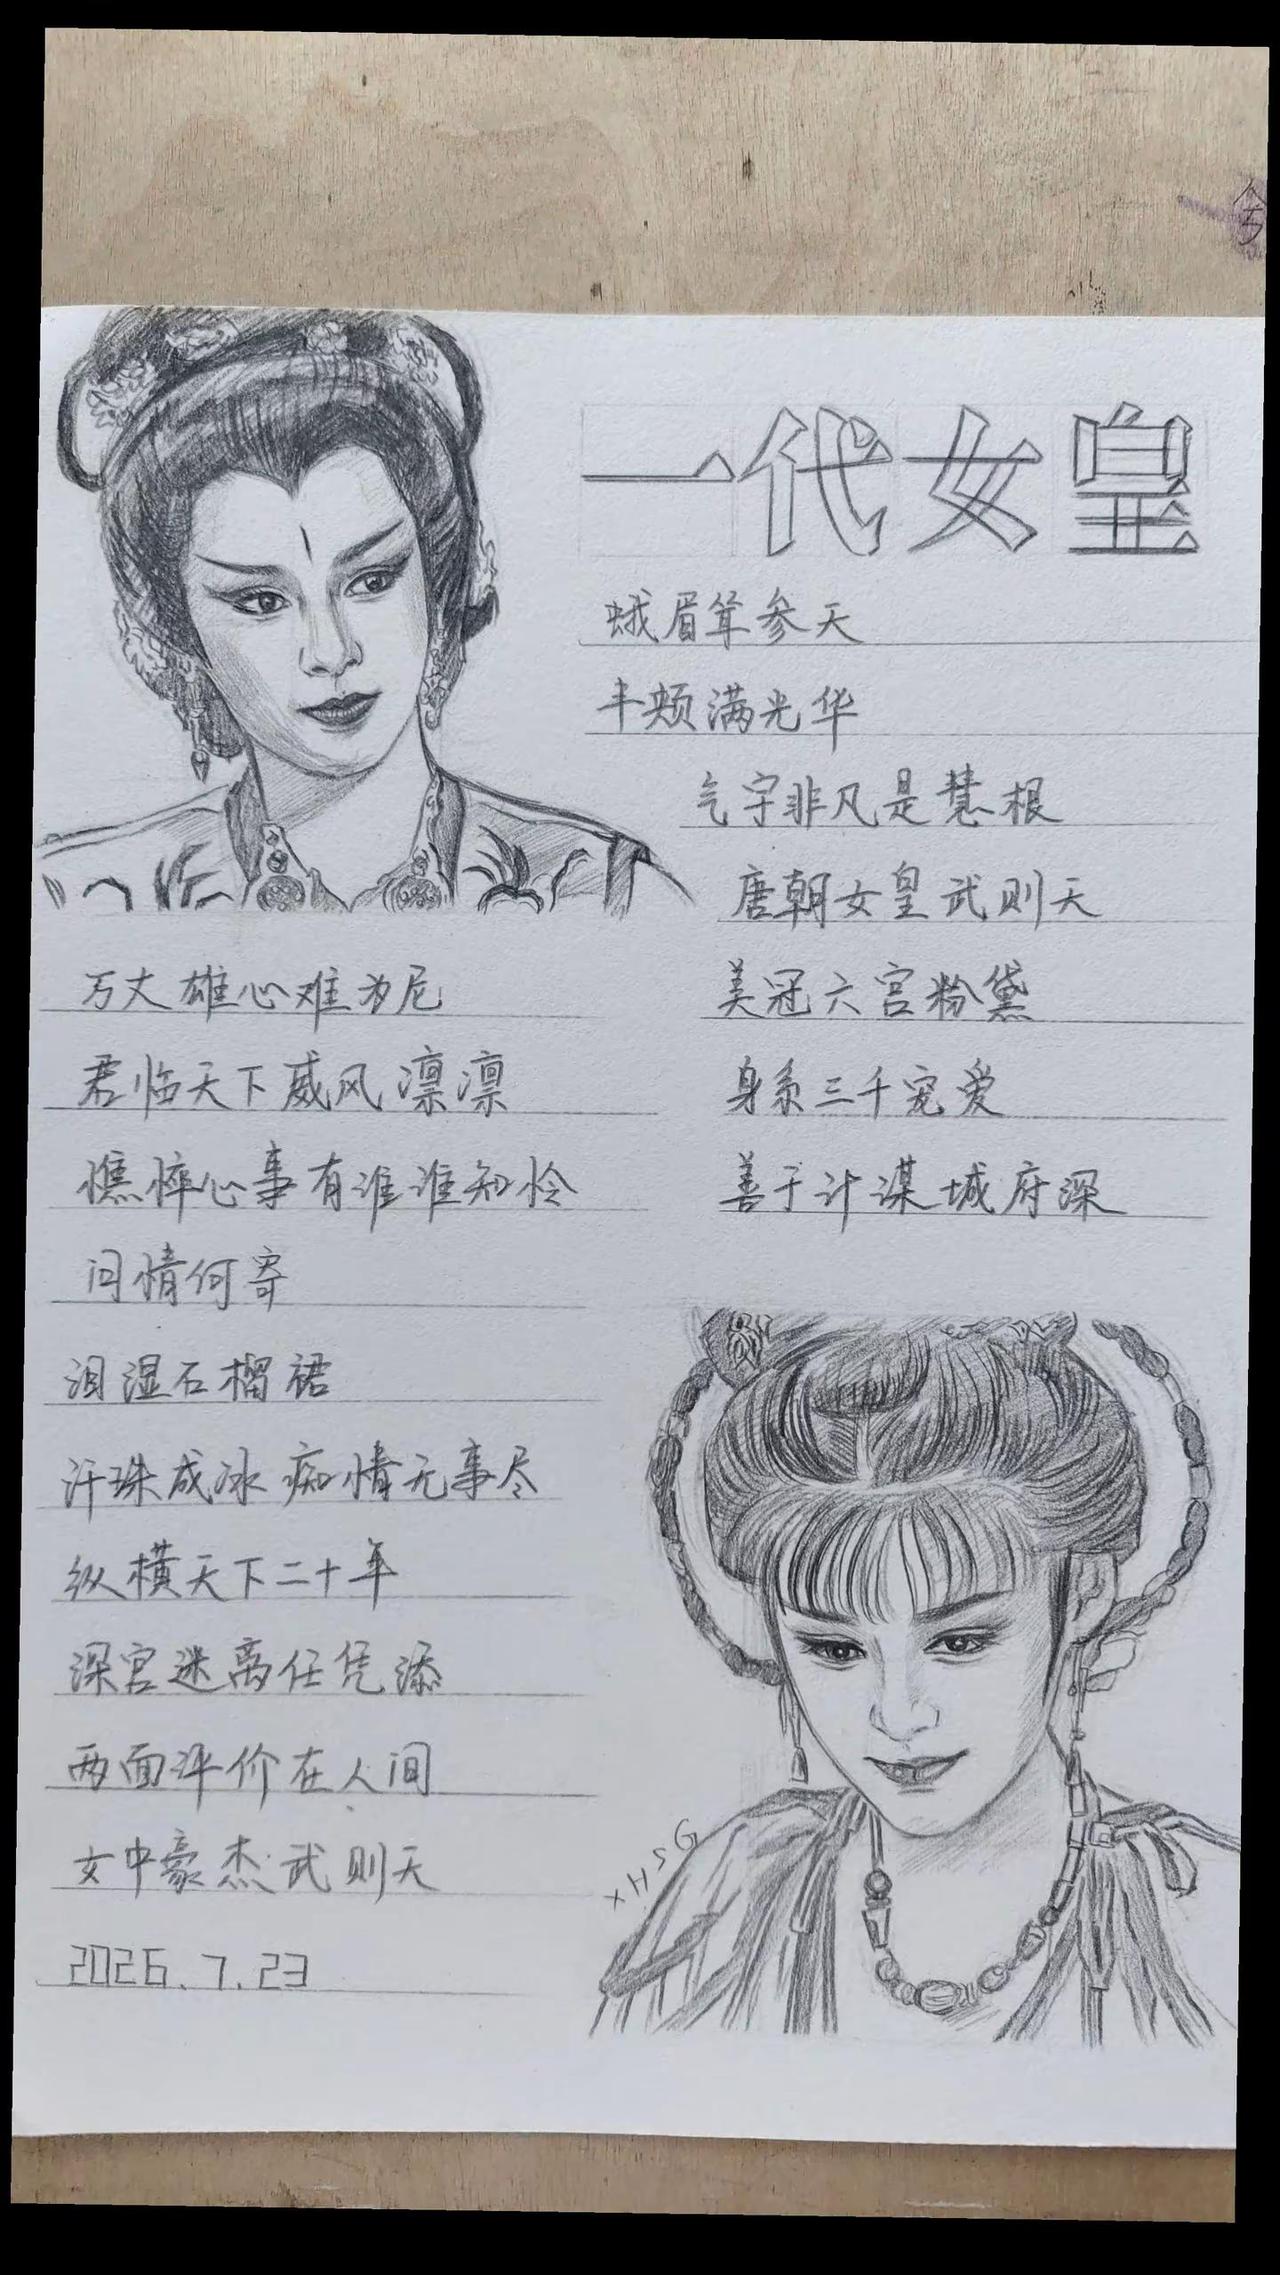 兮
一代女皇
蛾眉耸参天
丰颊满光华
气宇非凡是慧根
唐朝女皇武则天
美冠六宫粉黛
身系三千宠爱
善于计谋城府深
万丈雄心难为尼
君临天下威风凛凛
憔悴心事有谁谁知怜
问情何寄
泪湿石榴裙
汗珠成冰痴情无事尽
纵横天下二十年
深宫迷离任凭添
两面评价在人间
女中豪杰武则天
2026.7.23
XHSG